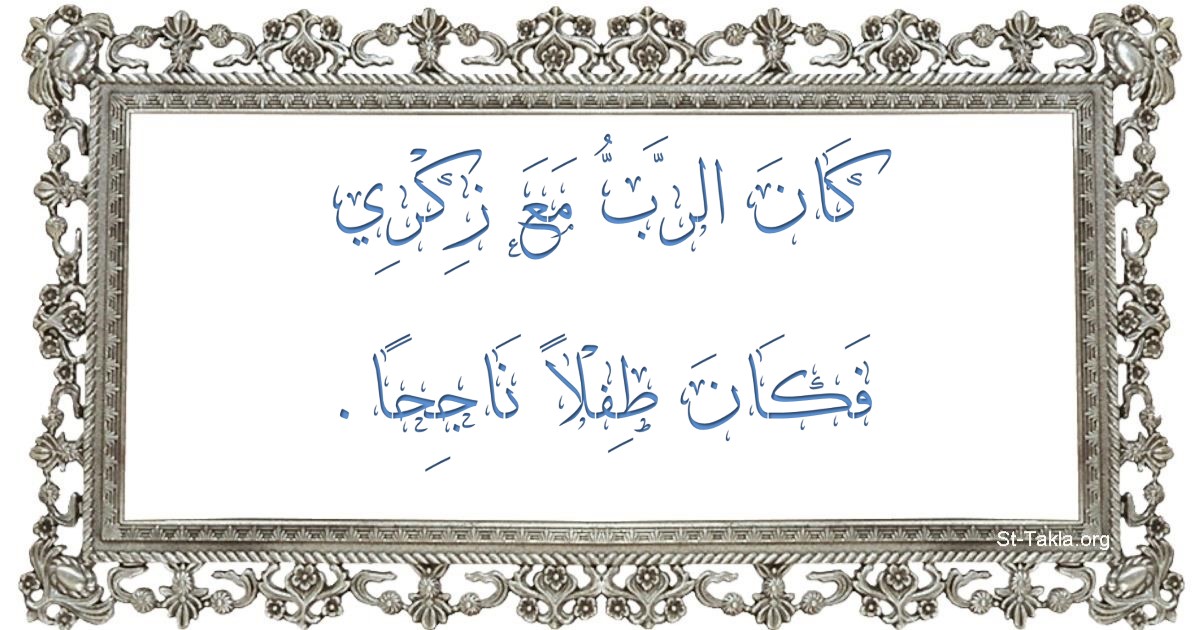 كَانَ الرَّبُّ مَعَ زِكْرِي
فَكَانَ طِفْلاً نَاجِحًا .
St-Takla.org